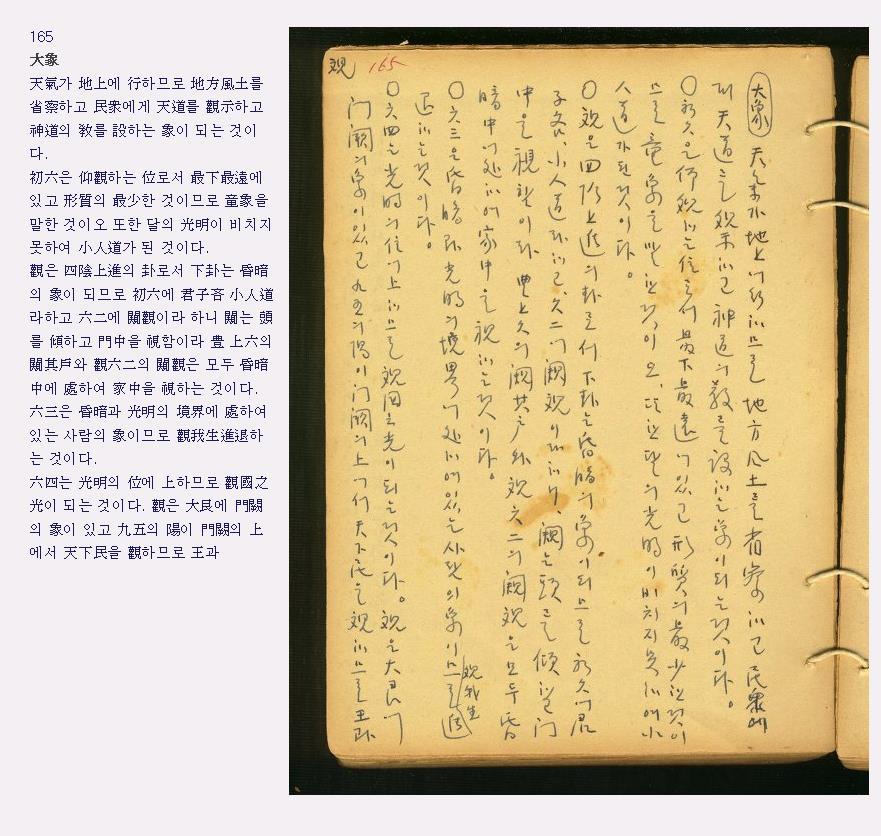 165
大象
天氣가 地上에 行하므로 地方風土를
省察하고 民衆에게 天道를 觀示하고
神道의 敎를 設하는 象이 되는 것이
다.
初六은 仰觀하는 位로서 最下最遠에
있고 形質의 最少한 것이므로 童象을
말한 것이오 또한 달의 光明이 비치지
못하여 小人道가 된 것이다.
觀은 四陰上進의 卦로서 下卦는 昏暗
의 象이 되므로 初六에 君子吝 小人道
라하고 六二에 闚觀이라 하니 闚는 頭
를 傾하고 門中을 視함이라 豊 上六의
闚其戶와 觀六二의 闚觀은 모두 昏暗
中에 處하여 家中을 視하는 것이다.
六三은 昏暗과 光明의 境界에 處하여
있는 사람의 象이므로 觀我生進退하
는 것이다.
六四는 光明의 位에 上하므로 觀國之
光이 되는 것이다. 觀은 大艮에 門闕
의 象이 있고 九五의 陽이 門闕의 上
에서 天下民을 觀하므로 王과
觀 165
大象 天氣가 地上에 行하므로 地方風土를 省察하고 民衆에
게 天道를 觀示하고 神道의 敎를 設하는 象이 되는 것이다.
○初六은 仰觀하는 位로서 最下最遠에 있고 形質의 最少한 것이
므로 童象을 말한 것이오, 또한 달의 光明이 비치지 못하여 小
人道가 된 것이다.
○觀은 四陰上進의 卦로서 下卦는 昏暗의 象이 되므로 初六에 君
子吝, 小人道라하고, 六二에 闚觀이라하니, 闚는 頭를 傾하고 門
中을 視함이라 豊上六의 闚其戶와 觀六二의 闚觀은 모두 昏
暗中에 處하여 家中을 視하는 것이다.
○六三은 昏暗과 光明의 境界에 處하여 있는 사람의 象이므로 觀我生 進
退하는 것이다.
○六四는 光明의 位에 上하므로 觀國之光이 되는 것이다. 觀은 大艮에
門闕의 象이 있고 九五의 陽이 門闕의 上에서 天下民을 觀하므로 王과